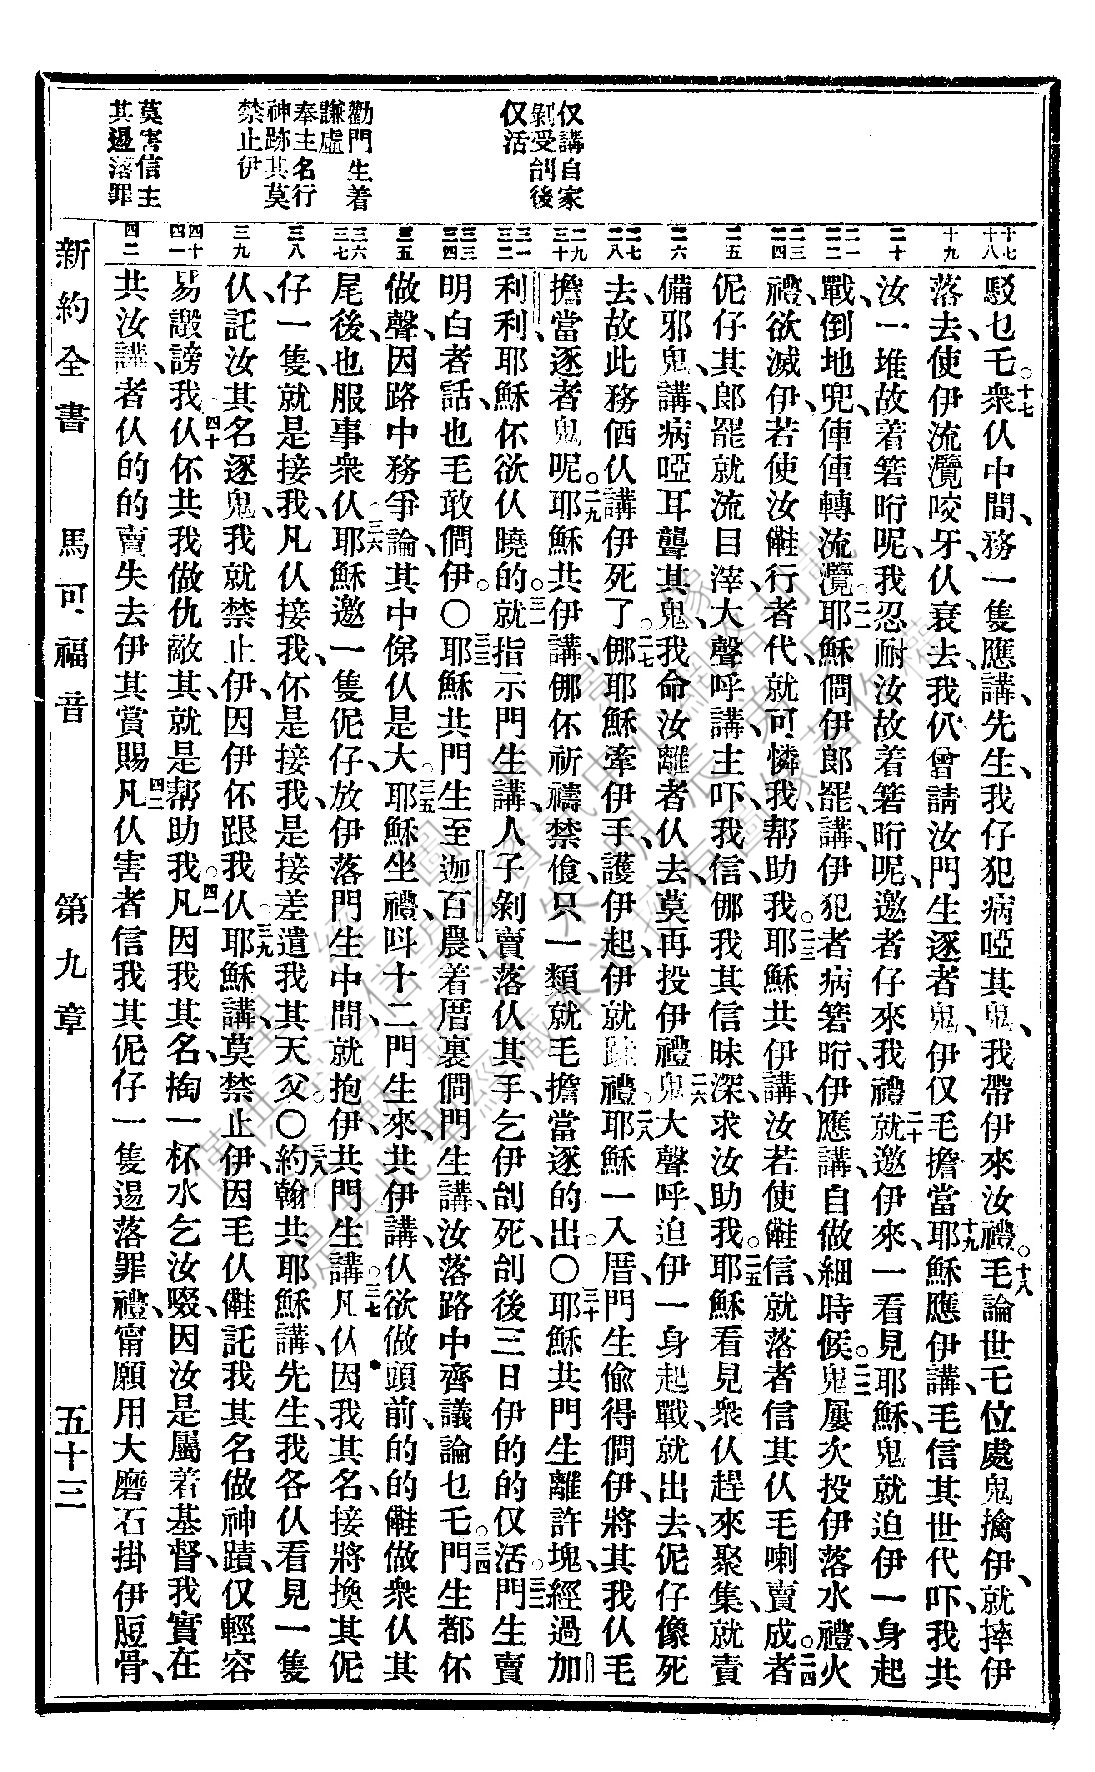 仅講自家
剝受剖後
仅活
勸門生着
謙虛
奉主名行
神跡其莫
禁止伊
莫害信主
其逿落罪
十七
十八
十九
二十
二一
二二
二三
二四
二五
二六
二七
二八
二九
三十
三一
三二
三三
三四
三五
三六
三七
三八
三九
四十
四一
四二
駁乜乇○十七衆仈中間、務一隻應講、先生、我仔犯病啞其鬼、我帶伊來汝禮○十八乇論世乇位處鬼擒伊、就摔伊
落去、使伊流灠咬牙、仈衰去、我伬曾請汝門生逐者鬼、伊仅乇擔當、十九耶穌應伊講、乇信其世代吓、我共
汝一堆、故着箬𣍐呢、我忍耐汝故着箬𣍐呢、邀者仔來我禮、二十就邀伊來、一看見耶穌、鬼就迫伊一身起
戰、倒地兜、俥俥轉流灠、二一耶穌僩伊郎罷講、伊犯者病箬𣍐、伊應講、自做細時候○二二鬼屢次投伊落水禮、火
禮、欲滅伊、若使汝𠆧行者代、就可憐我、帮助我○二三耶穌共伊講、汝若使𠆧信、就落者信其仈乇喇賣成○二四者
伲仔其郎罷、就流目滓、大聲呼講、主吓、我信、㑚我其信昧深、求汝助我○二五耶穌看見衆仈趕來聚集、就責
備邪鬼、講、病啞耳聾其鬼、我命汝離者仈去、莫再投伊禮、二六鬼大聲呼、迫伊一身起戰、就出去、伲仔像死
去、故此務価仈講伊死了○二七㑚耶穌牽伊手、護伊起、伊就跬禮、二八耶穌一入厝、門生偷得僩伊、將其我仈乇
擔當逐者鬼呢○二九耶穌共伊講、㑚伓祈禱禁飡、只一類就乇擔當逐的出○三十耶穌共門生離許塊、經過加
利利、耶穌伓欲仈曉的○三一就指示門生講、人子剝賣落仈其手、乞伊刣死、刣後三日伊的的仅活、三二門生賣
明白者話、也乇敢僩伊○三三耶穌共門生至迦百農、着厝裏僩門生講、汝落路中齊議論乜乇○三四門生都伓
做聲、因路中務爭論、其中俤仈是大○三五耶穌坐禮、呌十二門生來、共伊講、仈欲做頭前、的的𠆧做衆仈其
尾後、也服事衆仈、三六耶穌邀一隻伲仔、放伊落門生中間、就抱伊、共門生講○三七凡仈因我其名、接將換其伲
仔一隻、就是接我、凡仈接我、伓是接我、是接差遣我其天父○三八約翰共耶穌講、先生、我各仈看見一隻
仈、託汝其名逐鬼、我就禁止伊、因伊伓跟我仈、三九耶穌講、莫禁止伊、因乇仈𠆧託我其名做神蹟、仅輕容
易譭謗我、四十仈伓共我做仇敵其、就是帮助我○四一凡因我其名、掏一杯水乞汝啜、因汝是屬着基督、我實在
共汝講、者仈的的賣失去伊其賞賜、四二凡仈害者信我其伲仔一隻逿落罪禮、甯願用大磨石掛伊脰骨、
新約全書
馬可福音
第九章
五十三